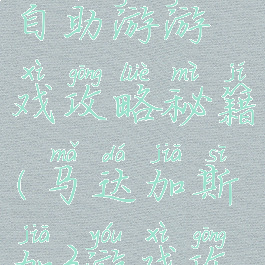 自助游游
xì gōng lüè mì jí
戏攻略秘籍
mǎ dá jiā sī
(马达加斯
jiā yóu xì gōng
加游戏攻